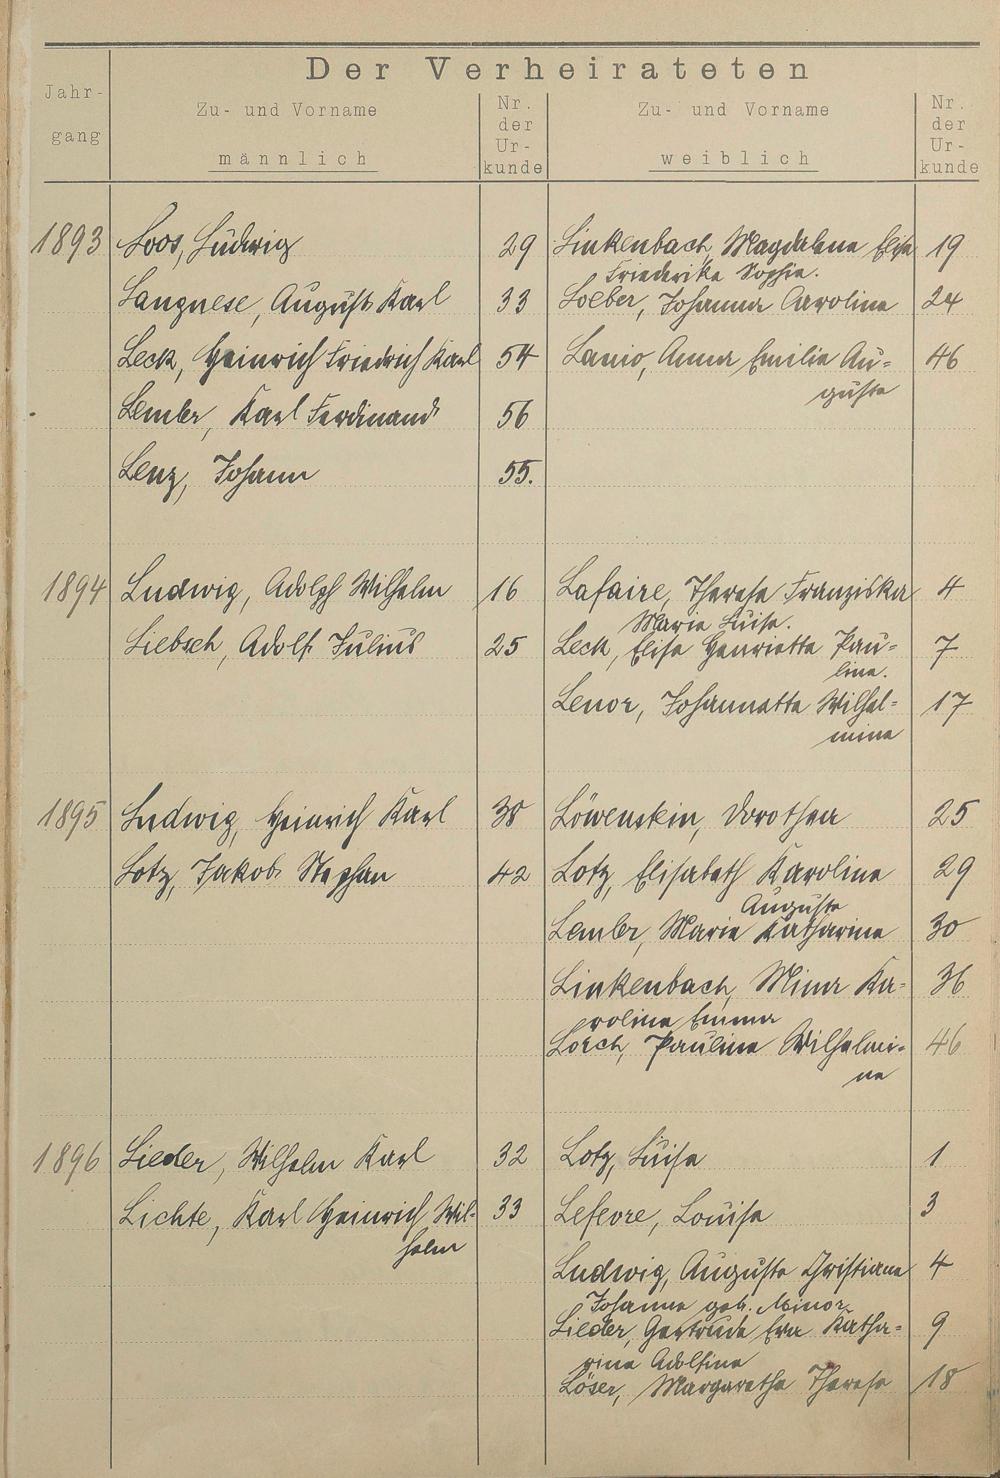 Der Verheirateten
Jahr-
gang
Zu- und Vorname
männlich
Nr.
der
Ur-
kunde
Zu- und Vorname
weiblich
Nr.
der
Ur-
kunde
1893 Loos, Ludwig 29 Linkenbach, Magdalena Elise 19
Friederike Sophie.
Langnese, August Karl 33 Loeber, Johanna Caroline 24
Leck, Heinrich Friedrich Karl 54 Lanio, Anna Emilie Au- 46
guste
Lembr, Karl Ferdinand 56
Lenz, Johann 55.
1894 Ludwig, Adolph Wilhelm 16 Lafaire, Therese Franziska 4
Marie Luise.
Liebsch, Adolf Julius 25 Leck, Elise Henriette Pau- 7
line.
Lenor, Johannette Wilhel- 17
mine
1895 Ludwig, Heinrich Karl 38 Löwenstein, Dorothea 25
Lotz, Jakob Stephan 42 Lotz, Elisabeth Karoline 29
Auguste
Lembr, Marie Katharine 30
Linkenbach, Mina Ka- 36
roline Emma
Lorch, Pauline Wilhelmi- 46
ne
1896 Lieder, Wilhelm Karl 32 Lotz, Luise 1
Lichte, Karl Heinrich Wil- 33 Lefevre, Louise 3
helm
Ludwig, Auguste Christiane 4
Johanna geb. Minor
Lieder, Gertrude Eva Katha- 9
rina Adolfine
Löser, Margarethe Therese 18